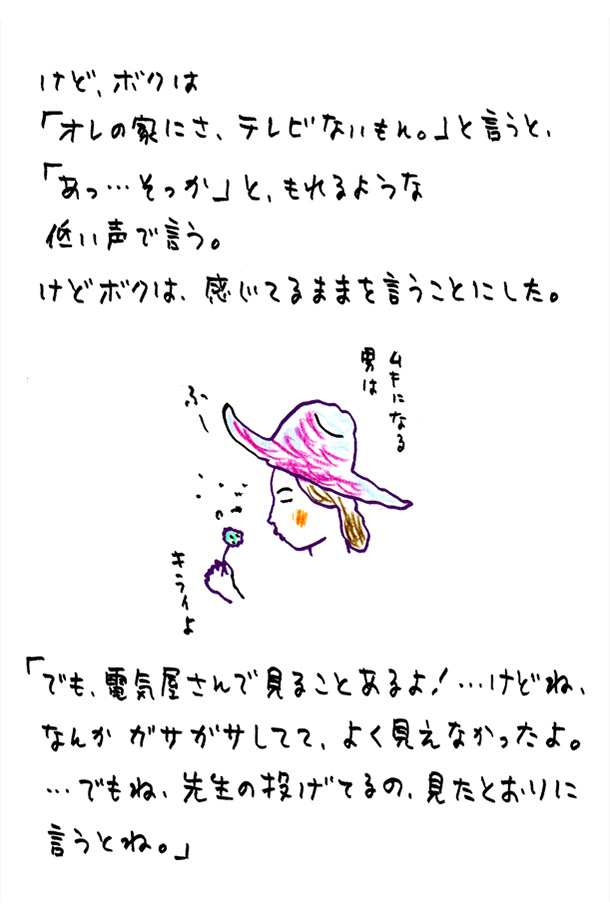 けど、ボクは
「オレの家にさ、テレビないもん。」と言うと、
「あっ…そっか」と、もれるような
低い声で言う。
けどボクは、感じてるままを言うことにした。
ムキになる
男は
ふー
キライよ
「でも、電気屋さんで見ることあるよ!…けどね、
なんか ガサガサしてて、よく見えなかったよ。
…でもね、先生の投げてるの、見たとおりに
言うとね。」